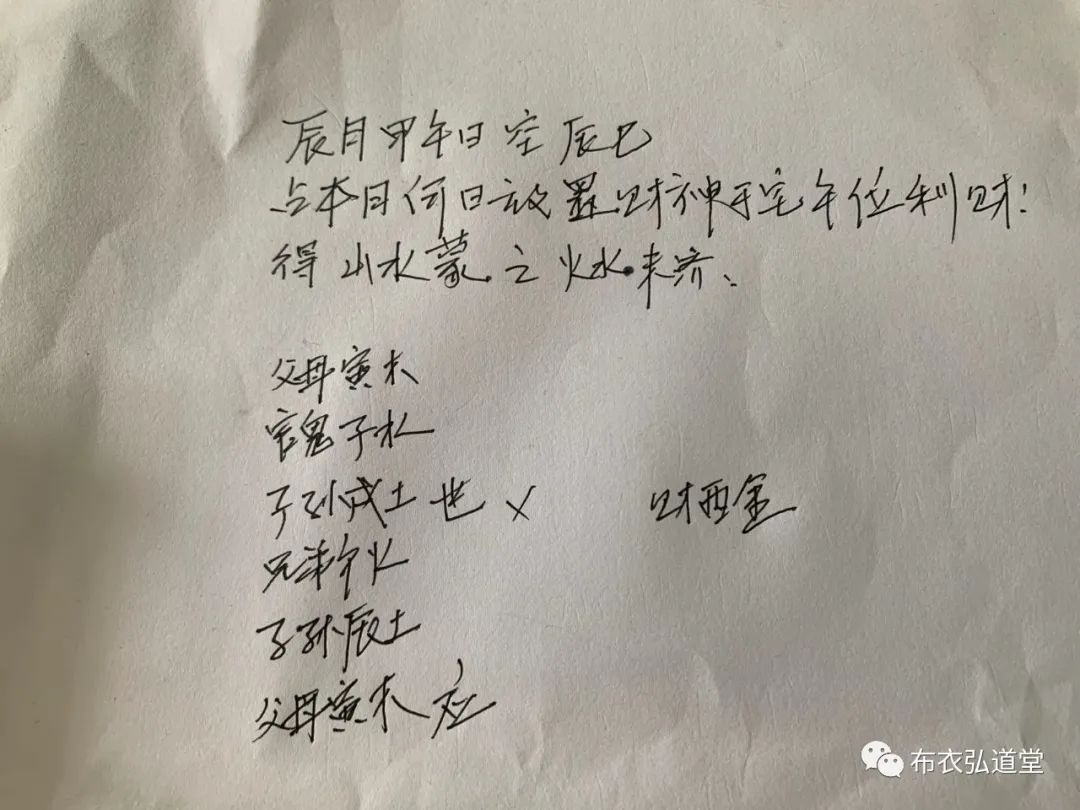 辰月甲午日空辰巳
占本月何日放置财神于宅午位利财:
得山水蒙之火水未济、
父母寅木
官鬼子水
子孙戌土 世 × 财酉金
兄弟午火
子孙辰土
父母寅木 应
布衣弘道堂